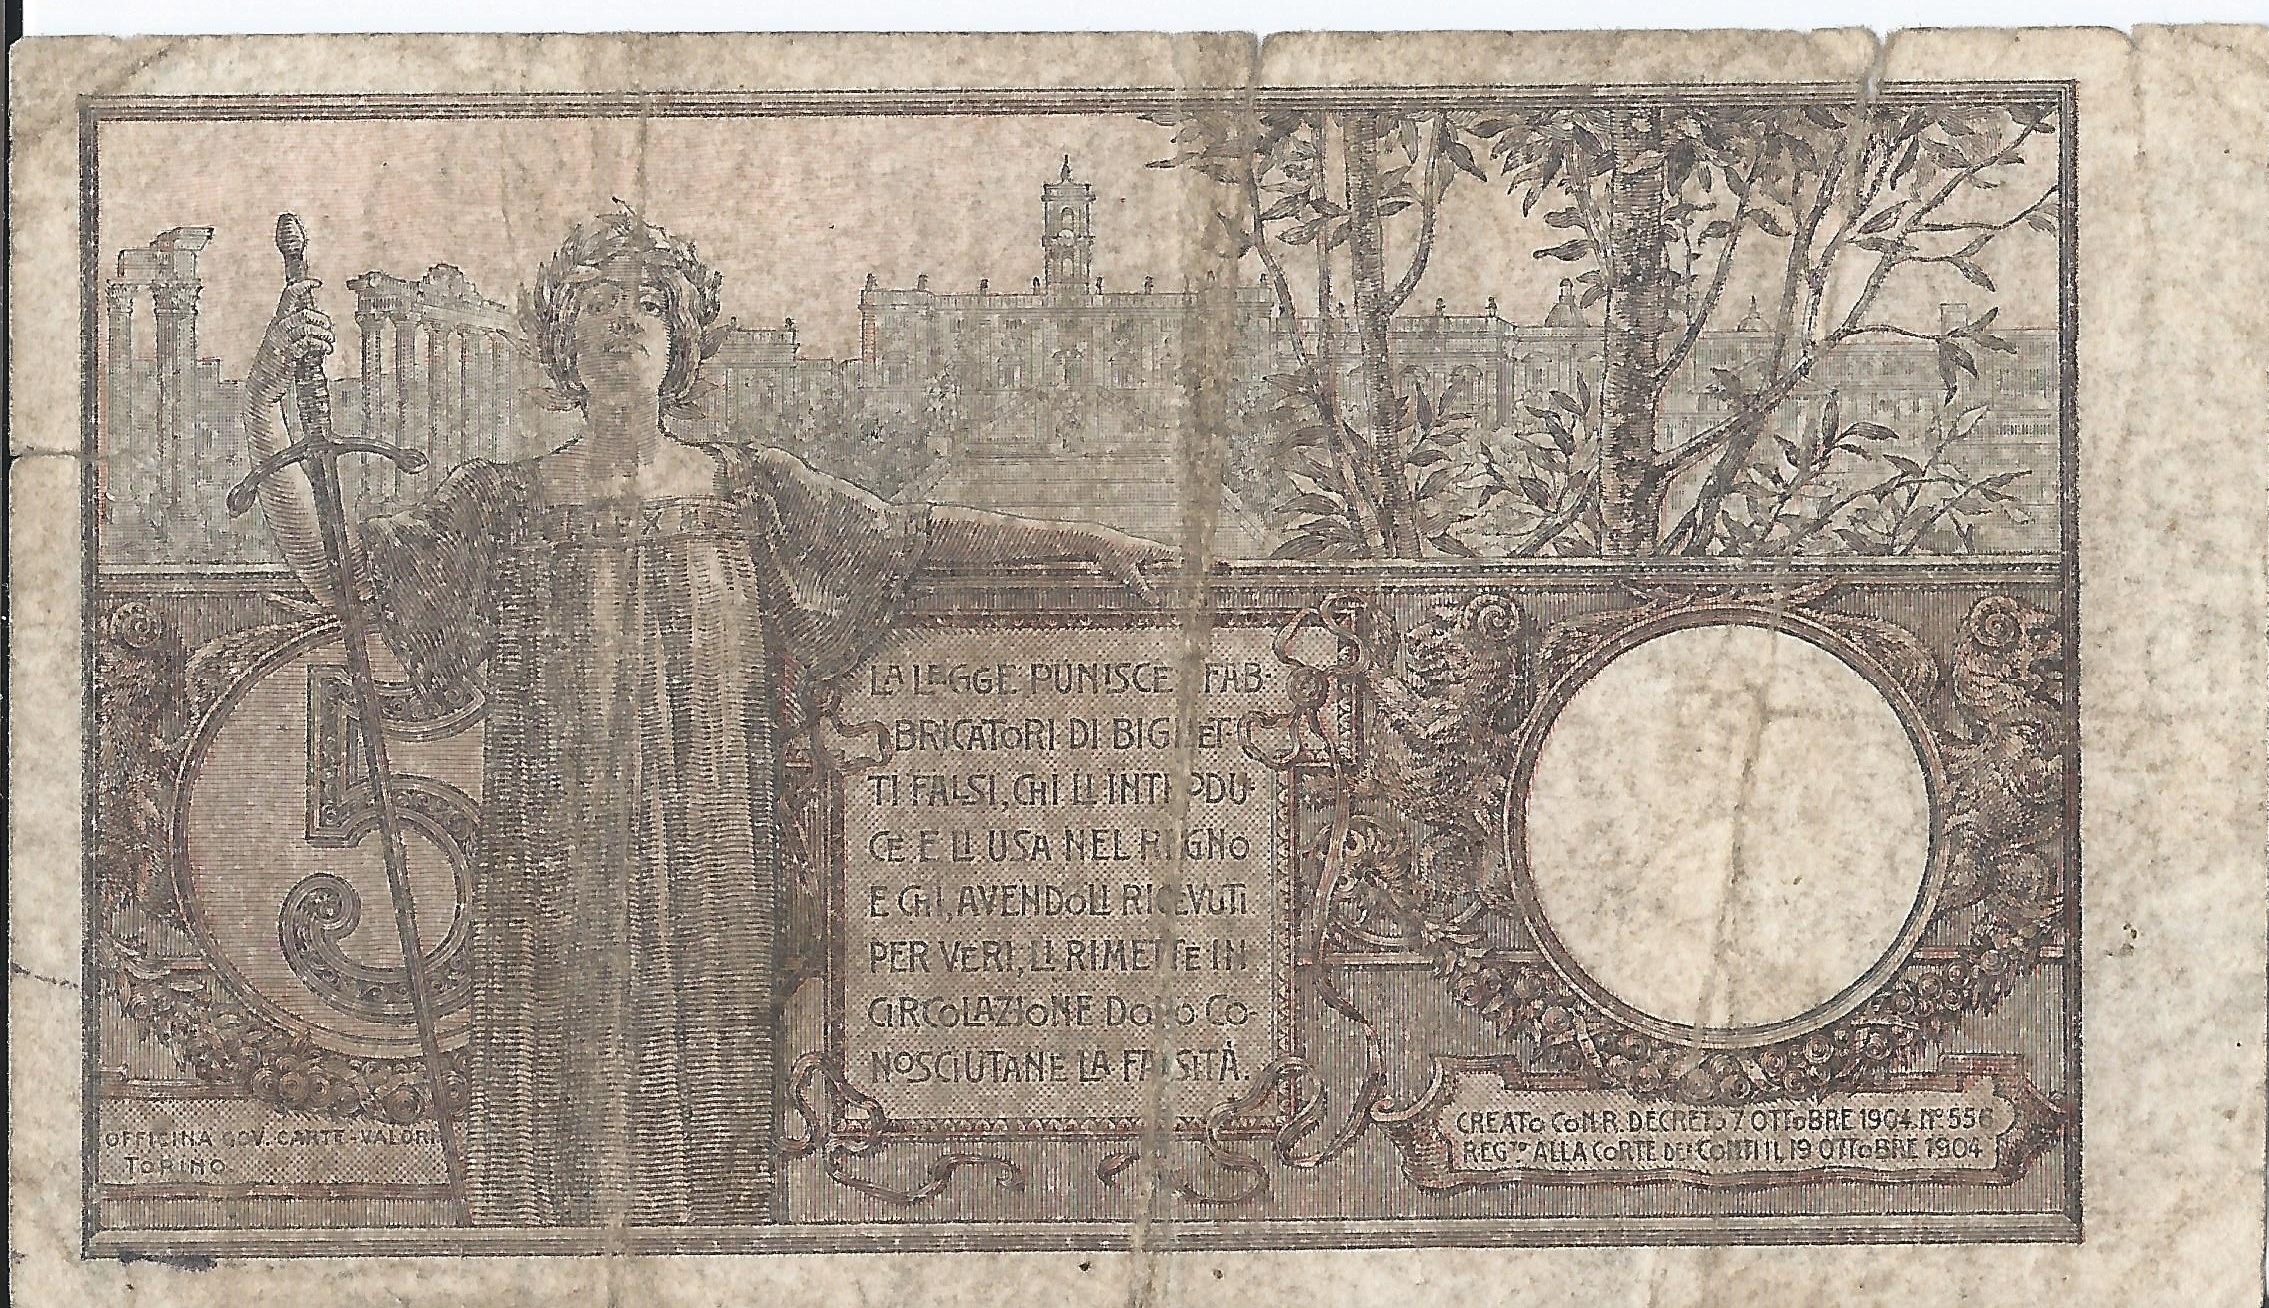 LEX
5
LA LEGGE PUNISCE I FAB-
BRICATORI DI BIGLIET-
TI FALSI, CHI LI INTRODU-
CE E LI USA NEL REGNO
E CHI, AVENDOLI RICEVUTI
PER VERI, LI RIMETTE IN
CIRCOLAZIONE DOPO CO-
NOSCIUTANE LA FALSITÀ.
OFFICINA GOV. CARTE-VALORI
TORINO
CREATO CON R. DECRETO 7 OTTOBRE 1904. Nº 556
REG.TO ALLA CORTE DEI CONTI IL 19 OTTOBRE 1904